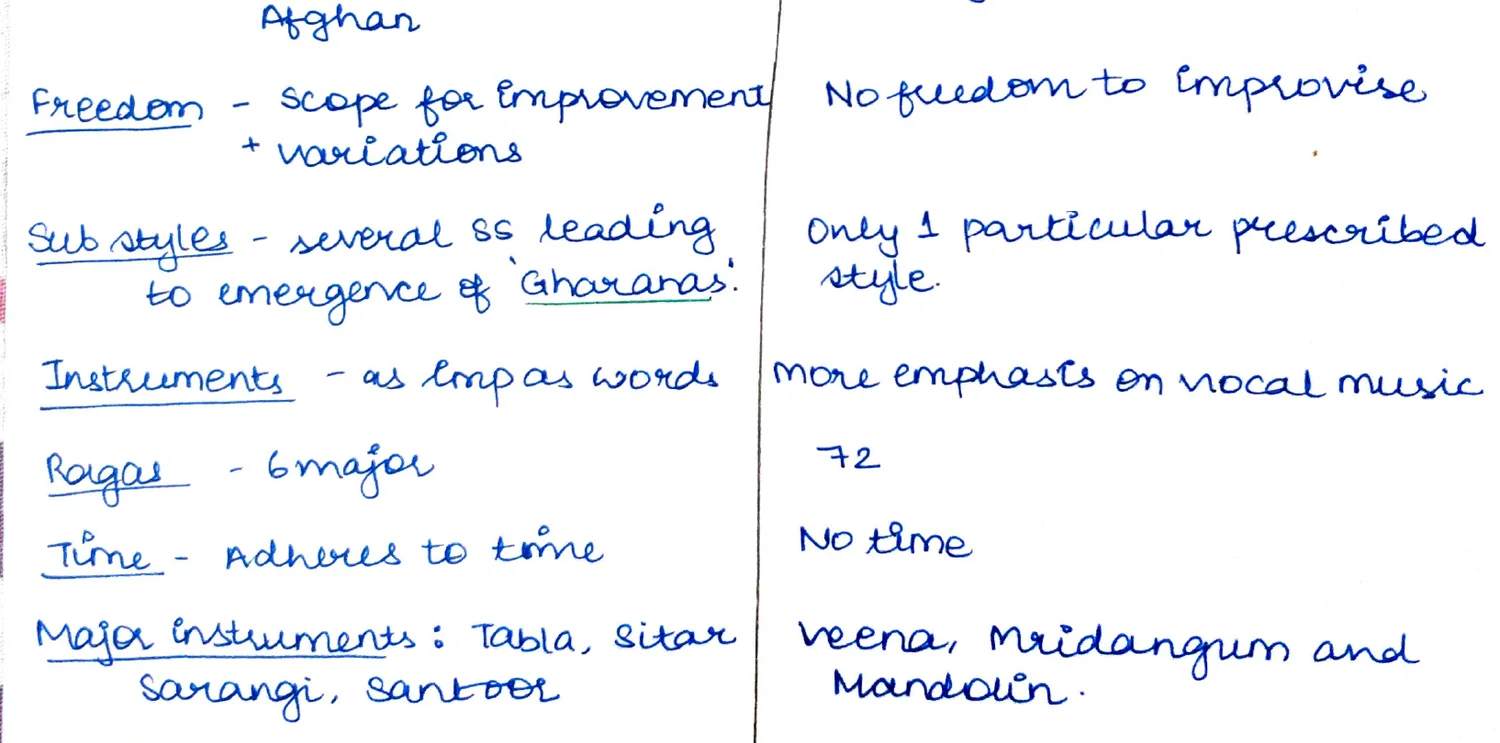 Afghan
Freedom - scope for improvement No freedom to improvise
+ variations
Sub styles - several SS leading Only 1 particular prescribed
to emergence of 'Gharanas'. style.
Instruments - as imp as words more emphasis on vocal music
Ragas - 6 major 72
Time - Adheres to time No time
Major instruments : Tabla, Sitar veena, Mridangum and
Sarangi, Santoor Mandolin.